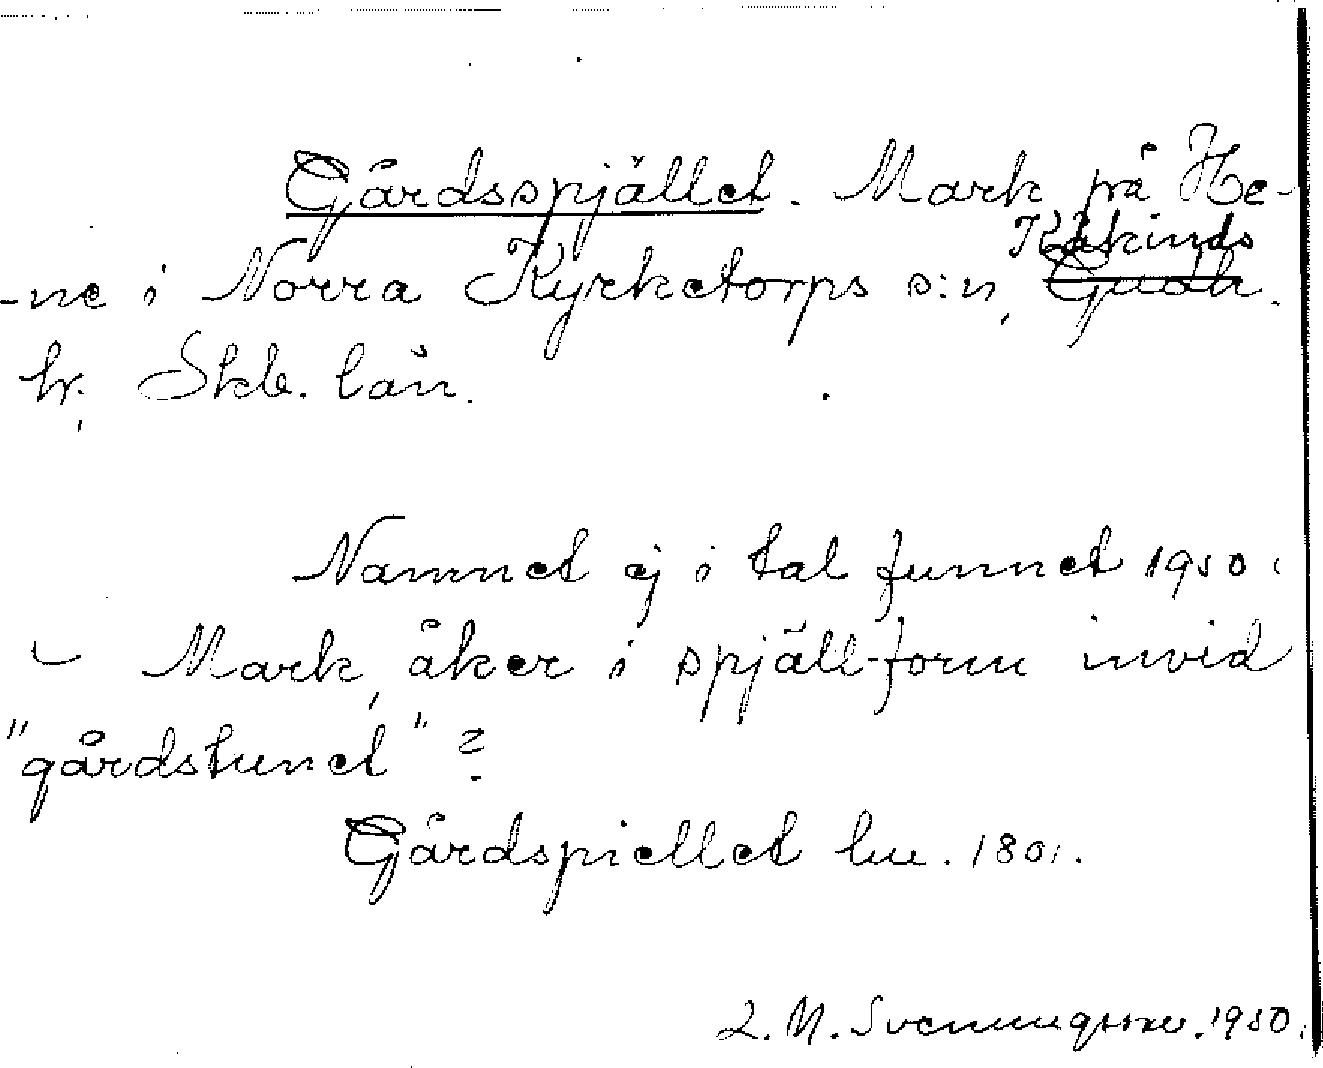 Gårdsspjället. Mark på He-
Kåkinds
-ne i Norra Kyrketorps s:n, Gudh.
hr. Skb. län.
Namnet ej i tal funnet 1950.
- Mark, åker i spjäll-form invid
"gårdstunet"?
Gårdspiellet lm. 1801.
L. M. Svenungsson. 1950.